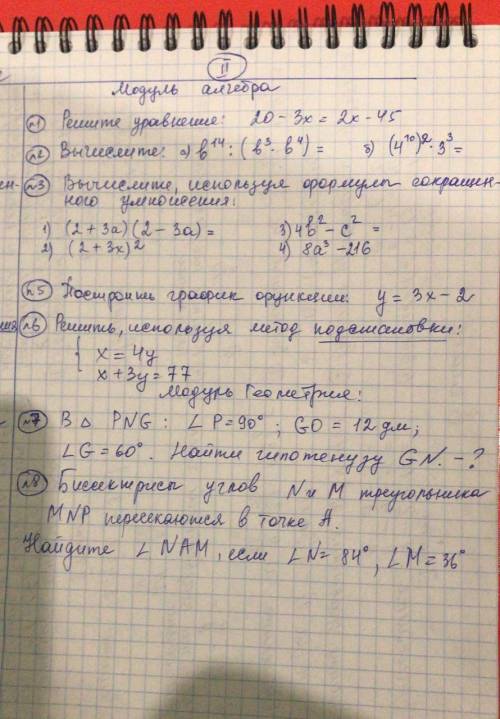 II
Модуль алгебра
№1 Решите уравнение: 20 - 3x = 2x - 45
№2 Вычислите: а) b¹⁴ : (b³ · b⁴) = б) (4¹⁰)² · 3³ =
№3 Вычислите, используя формулы сокращен-
ного умножения:
1) (2 + 3a)(2 - 3a) = 3) 4b² - c² =
2) (2 + 3x)² 4) 8a³ - 216
№5 Построить график функции: y = 3x - 2
№6 Решить, используя метод подстановки:
{ x = 4y
x + 3y = 77
Модуль Геометрия:
№7 В △ PNG : ∠P = 90° ; GO = 12 дм;
∠G = 60°. Найти гипотенузу GN. - ?
№8 Биссектрисы углов N и M треугольника
MNP пересекаются в точке A.
Найдите ∠NAM, если ∠N = 84°, ∠M = 36°